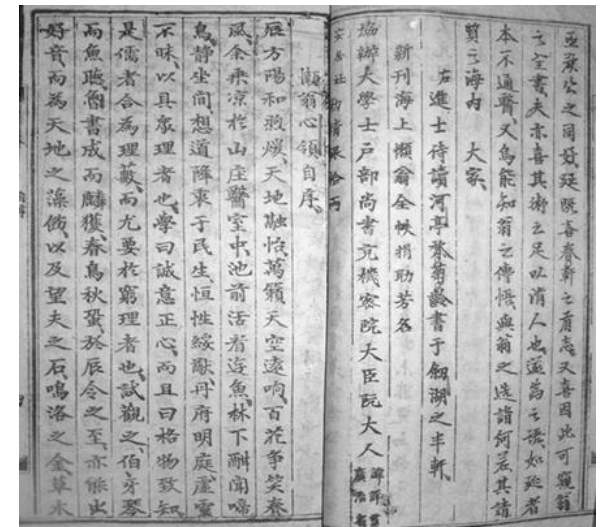 公之同好廷既喜春軒之有志又喜因此可窺翁
之全書夫亦喜其術之足以濟人也遂為之語如廷者
本不通醫又烏能知翁之傳悟與翁之造詣何若其請
質之海内 大家
右進士侍讀河亭 菊齡書于劍湖之半軒
新刊海上懶翁全帙捐助芳名
協辦大學士戶部尚書充機密院大臣阮大人 諱 廣治省
社 拾両
懶翁心領自序
辰方陽和敷煖、天地融怡、萬籟天空遠响、百花爭笑春
風余乘凉於山庄醫室中、池前活看遊魚、林下酣聞啼
鳥、静坐間想道降衷于民生、恒性綏猷、丹府明庭、虛靈
不昧、以具衆理者也、學曰誠意正心、而且曰格物致知
是儒者合為理藪、而尤要於窮理者也、試觀之、伯牙琴
而魚聴、魯書成而麟獲、春鳥秋蛩、於辰令之至、亦能出
好音、而為天地之藻飾、以及望夫之石、鳴洛之金、草木